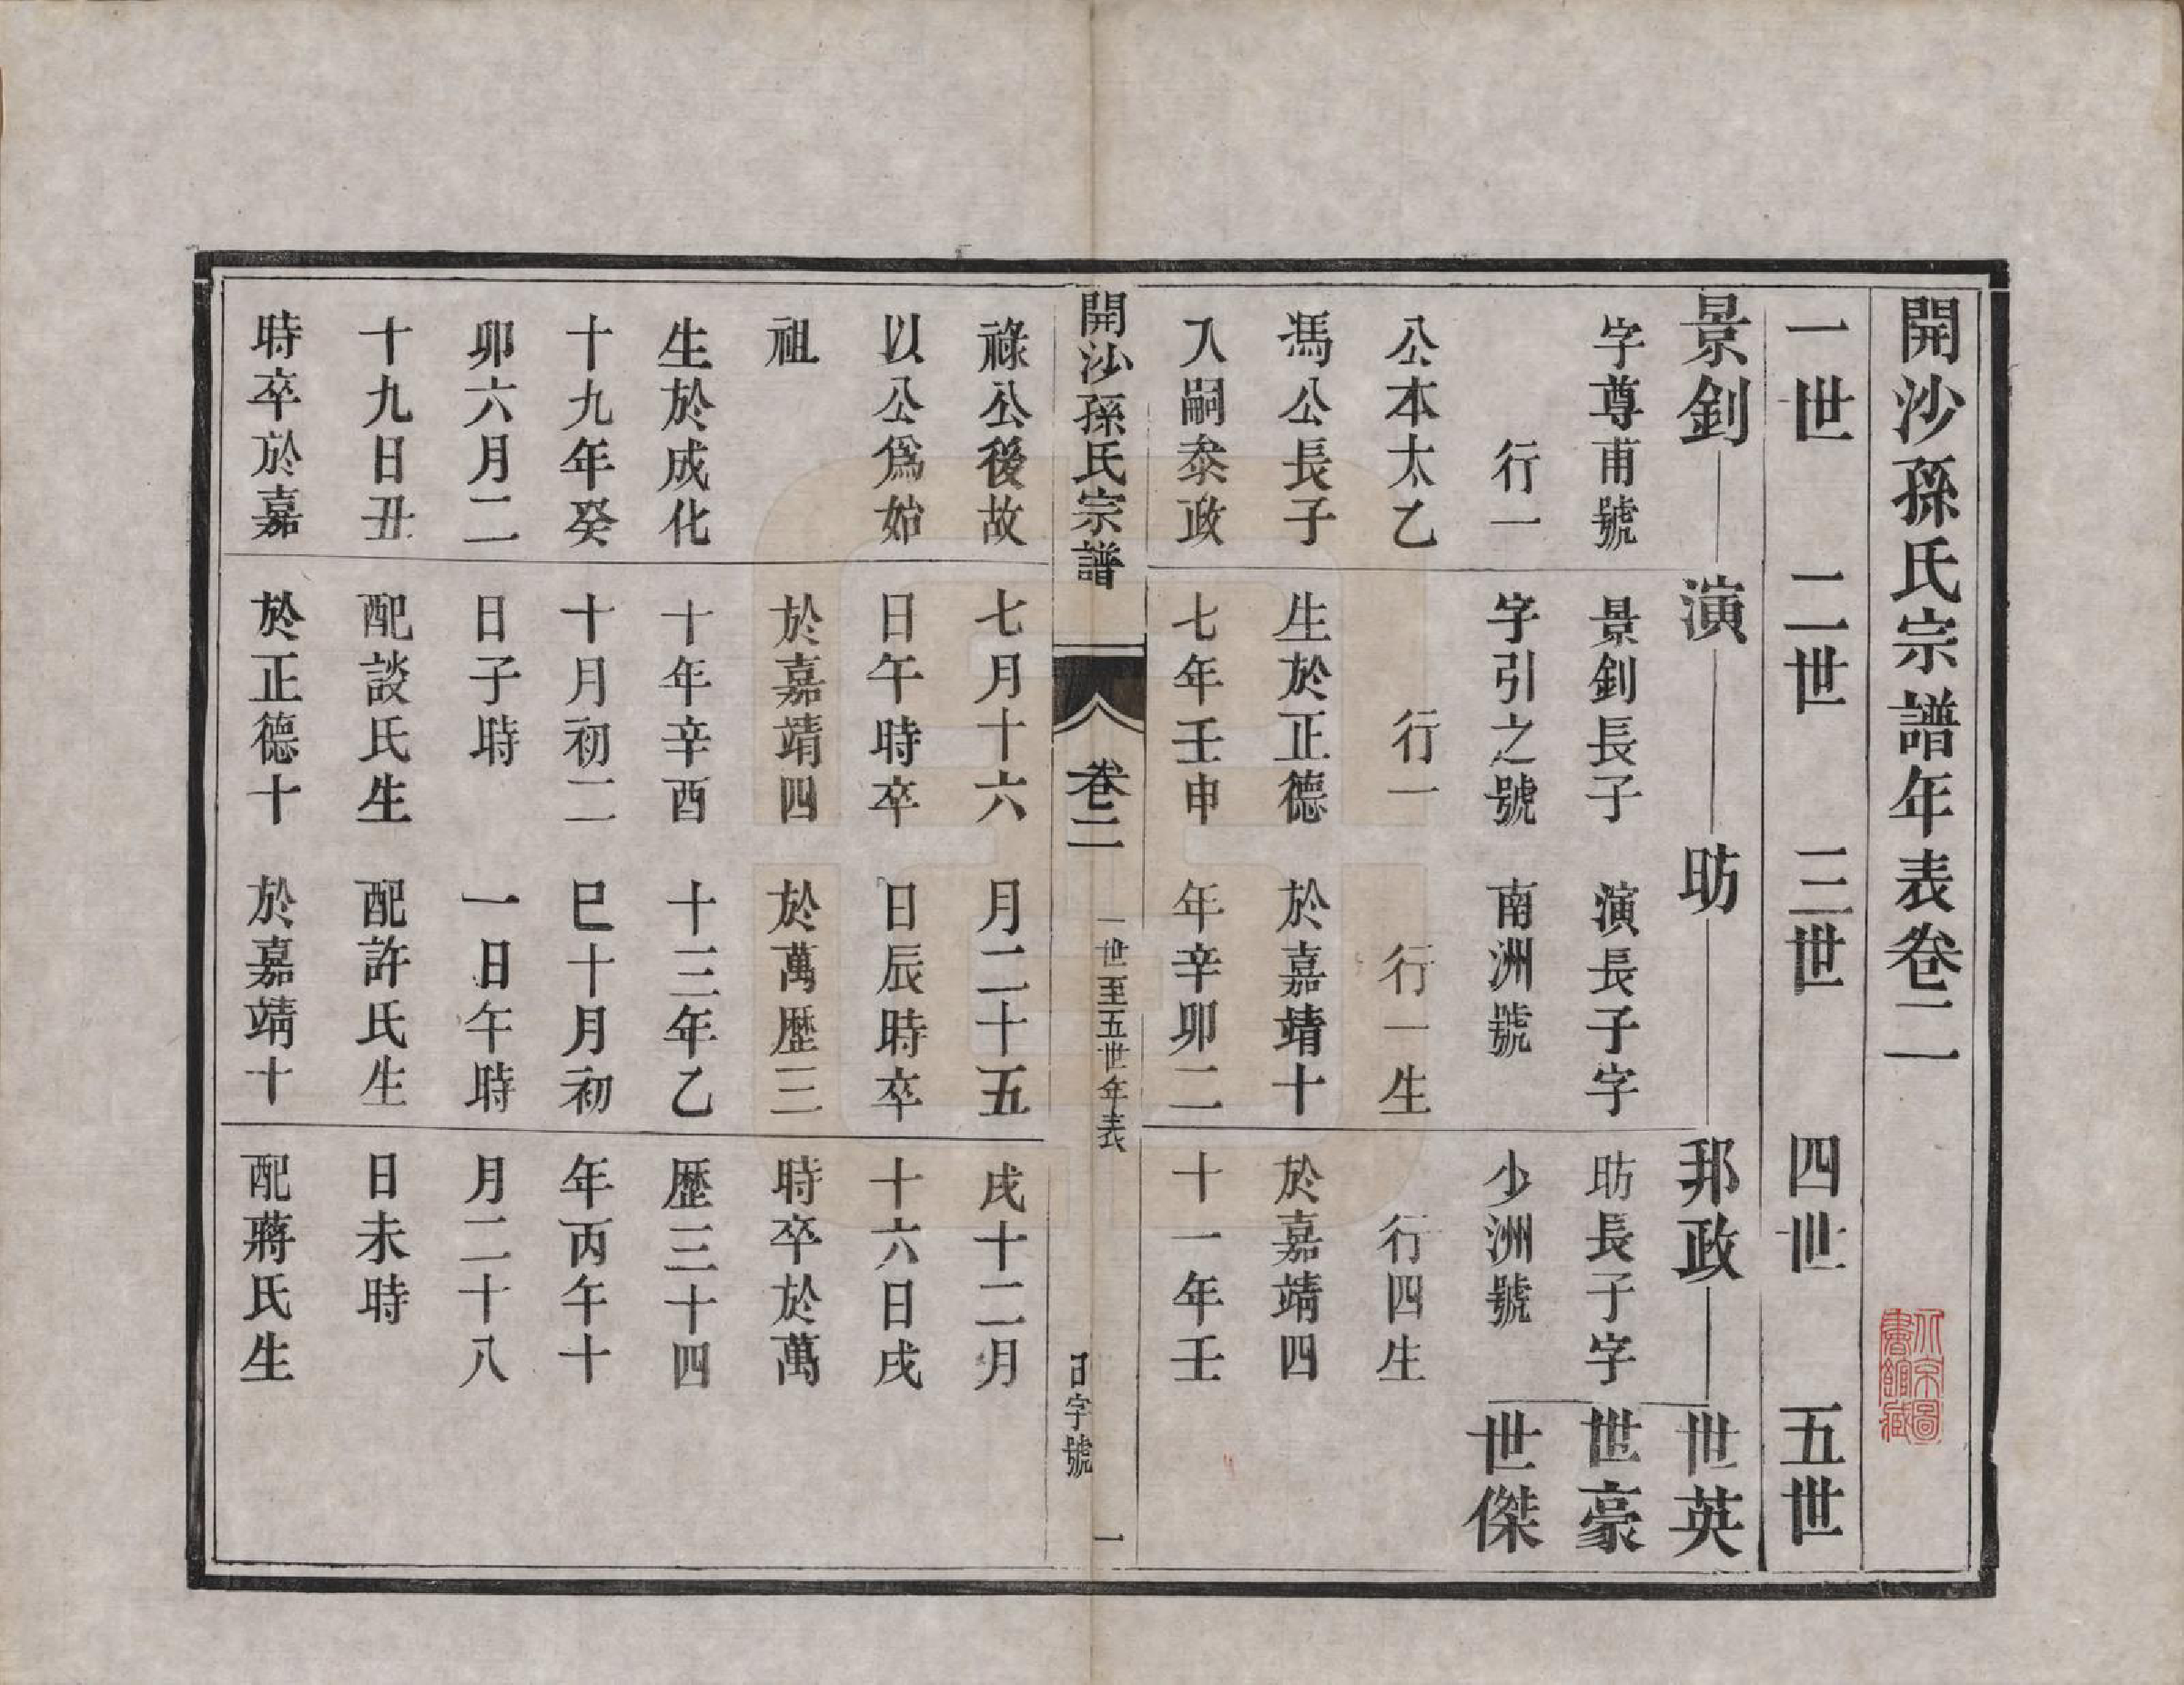 開沙孫氏宗譜年表卷二
北京圖
書館藏
一世 二世 三世 四世 五世
景釗 演 昉 邦政 世英
世豪
世傑
字尊甫號
行一
公本太乙
馮公長子
入嗣叅政
祿公後故
以公爲始
祖
生於成化
十九年癸
卯六月二
十九日丑
時卒於嘉
景釗長子
字引之號
行一
生於正德
七年壬申
七月十六
日午時卒
於嘉靖四
十年辛酉
十月初二
日子時
配談氏生
於正德十
演長子字
南洲號
行一生
於嘉靖十
年辛卯二
月二十五
日辰時卒
於萬歷三
十三年乙
巳十月初
一日午時
配許氏生
於嘉靖十
昉長子字
少洲號
行四生
於嘉靖四
十一年壬
戌十二月
十六日戌
時卒於萬
歷三十四
年丙午十
月二十八
日未時
配蔣氏生
開沙孫氏宗譜
卷二
一世至五世年表
日字號
一